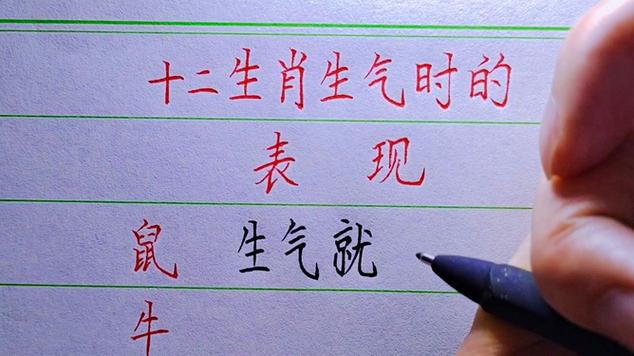 十二生肖生气时的
表 现
鼠 生气就
牛